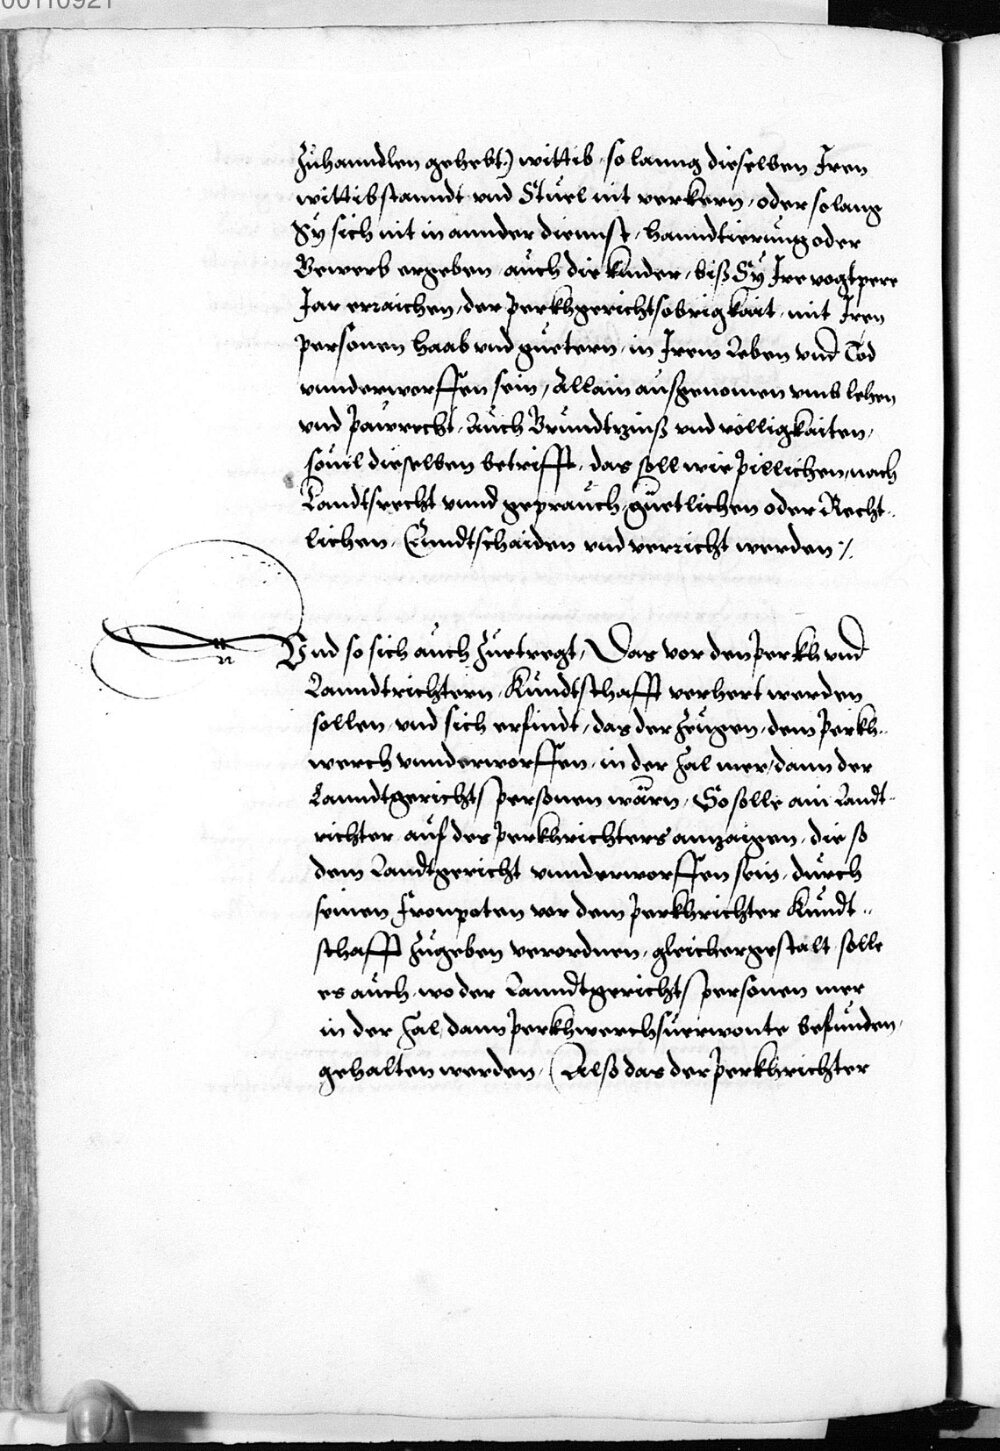 00110921
Zuhanndlen gehebt:) wittib, so lanng dieselben Iren
wittibstanndt vnd Stuel nit verkern, oder solang
Sy sich nit in annder diennst, hanndtierung oder
Gewerb ergeben, auch die kinder, biß Sy Ire vogtpere
Jar erraichen, der perkhgerichtsobrigkait, mit Iren
personen haab vnd guetern, in Irem Leben vnd Tod
vnnderworffen sein, Allain ausgenomen vmb lehen
vnd paurecht, Auch Grundtzinß vnd völligkaiten,
souil dieselben betrifft, das soll wie pillichen, nach
Landtsrecht vnnd geprauch, güetlichen oder Recht-
lichen, Enndtschaiden vnd verricht werden :/.
Vnd so sich auch Zuetregt, Das vor den perkh vnd
Lanndtrichtern, Kundtschafft verhert werden
sollen, vnd sich erfindt, das der Zeugen, dem perkh-
werch vnnderworffen, in der Zal mer, dann der
Lanndtgerichts personen wärn, So solle ain Landt-
richter auf des perkhrichters anzaigen, die so
dem Landtgericht vnnderworffen sein, durch
seinen Fronpoten vor dem perkhrichter Kundt-
schafft Zugeben verordnen, gleichergestalt solle
es auch, wo der Lanndtgerichts personen mer
in der Zal, dann perkhwerchsuerwonte befunden,
gehalten werden, (Also das der perkhrichter